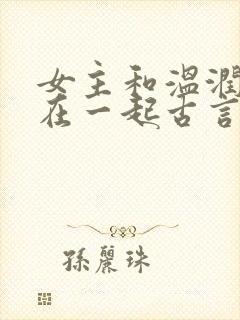 女主和溫潤
在一起古言
孫麗珠